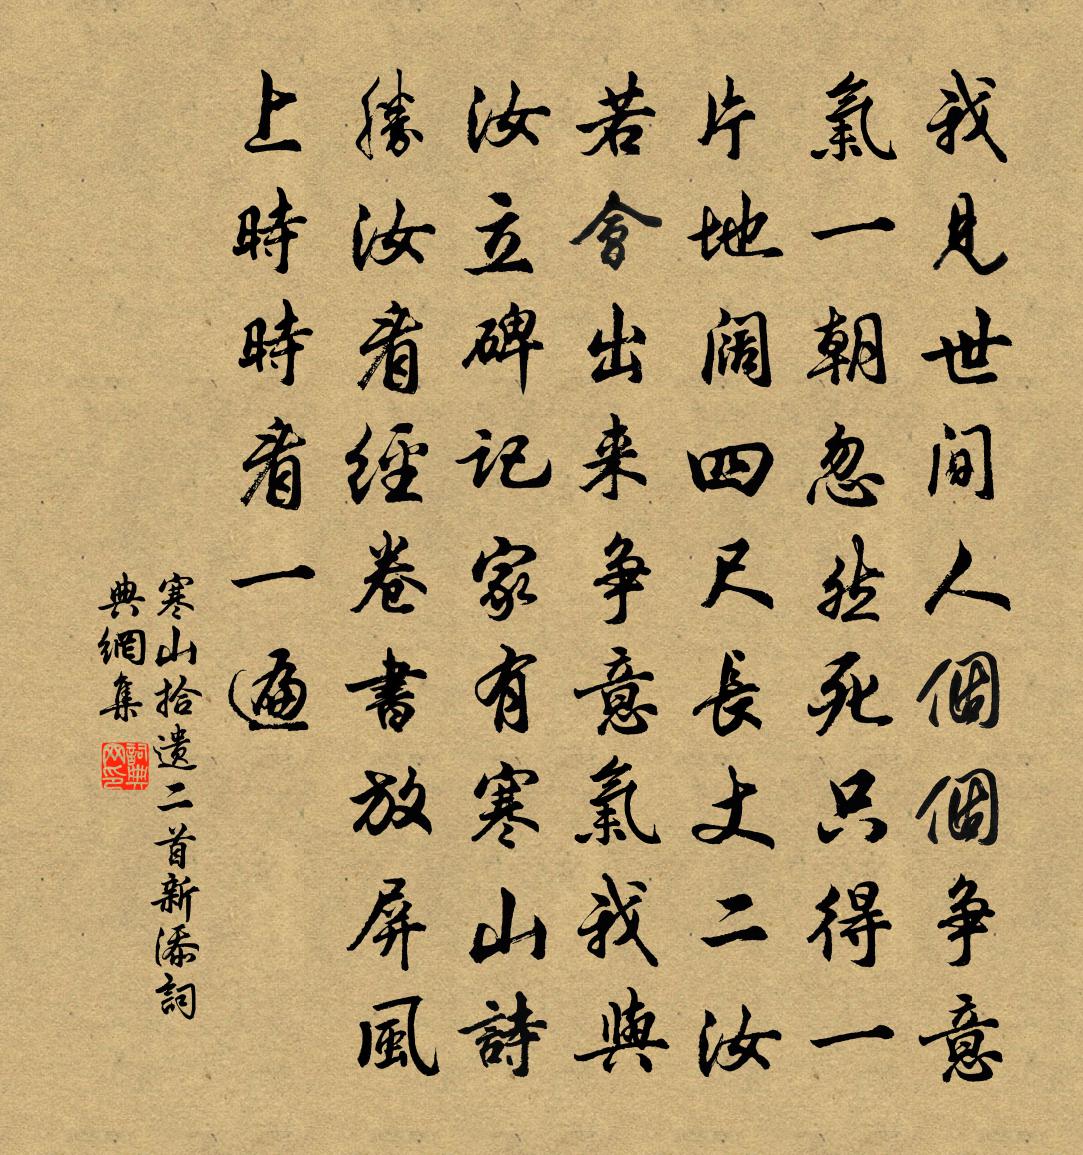 我見世間人個個爭意
氣一朝忽然死只得一
片地闊四尺長丈二汝
若會出来爭意氣我與
汝立碑記家有寒山詩
勝汝看經卷書放屏風
上時時看一遍
寒山拾遗二首新添詞
典網集
詞典网印